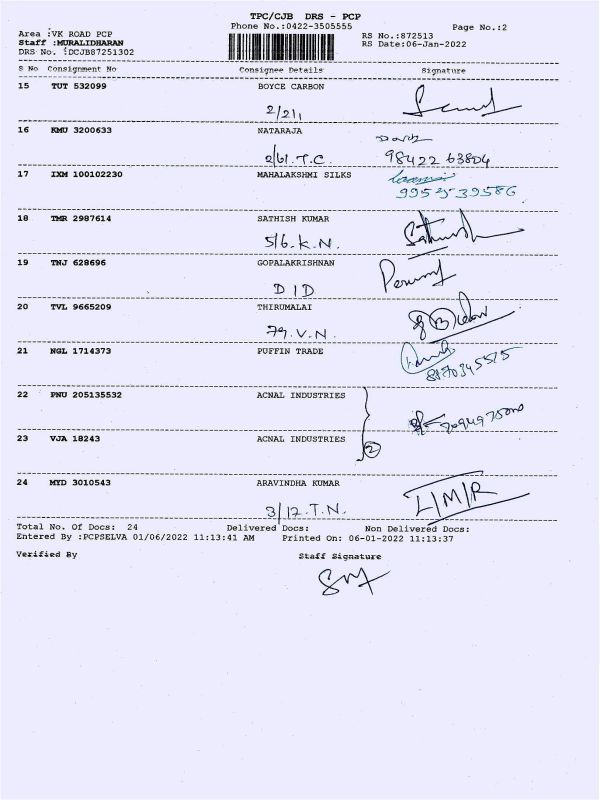 TPC/CJB DRS - PCP
Phone No.:0422-3505555 Page No.:2
Area :VK ROAD PCP RS No.:872513
Staff :MURALIDHARAN RS Date:06-Jan-2022
DRS No. :DCJB87251302
S No Consignment No Consignee Details Signature
15 TUT 532099 BOYCE CARBON
2/211
16 KMU 3200633 NATARAJA
2/61.T.C 98422 63804
17 IXM 100102230 MAHALAKSHMI SILKS
9952539586
18 TMR 2987614 SATHISH KUMAR
5/6.K.N.
19 TNJ 628696 GOPALAKRISHNAN
D I D
20 TVL 9665209 THIRUMALAI
79.V.N.
21 NGL 1714373 PUFFIN TRADE
22 PNU 205135532 ACNAL INDUSTRIES
23 VJA 18243 ACNAL INDUSTRIES
2
24 MYD 3010543 ARAVINDHA KUMAR
3/12.T.N. L/M/R
Total No. Of Docs: 24 Delivered Docs: Non Delivered Docs:
Entered By :PCPSELVA 01/06/2022 11:13:41 AM Printed On: 06-01-2022 11:13:37
Verified By Staff Signature